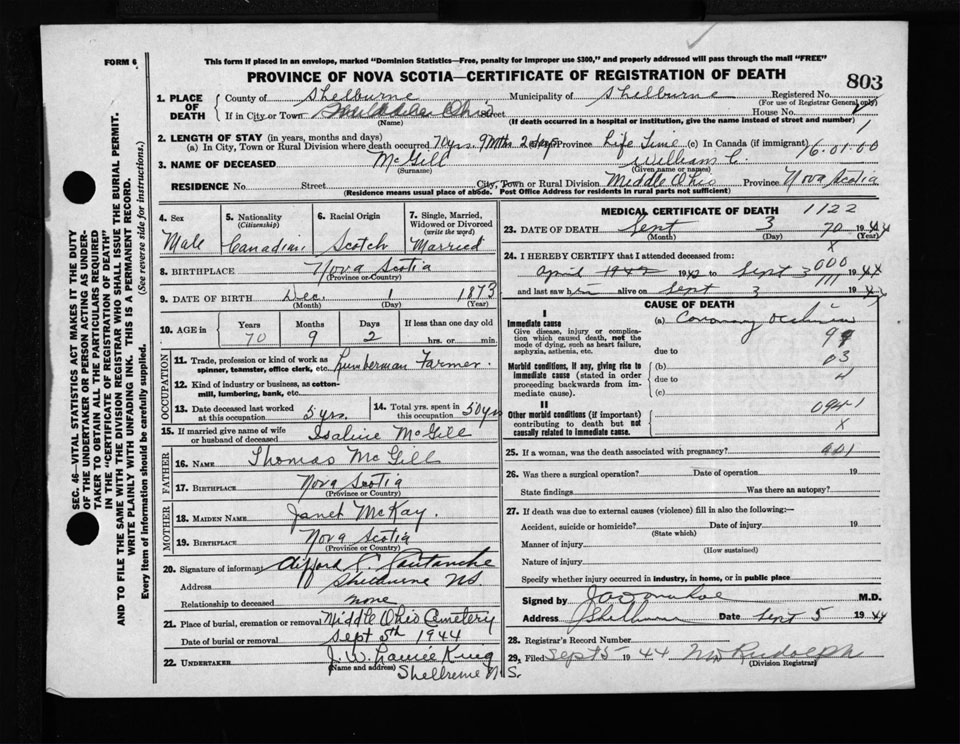 FORM 6
This form if placed in an envelope, marked "Dominion Statistics—Free, penalty for improper use $300," and properly addressed will pass through the mail "FREE"
PROVINCE OF NOVA SCOTIA—CERTIFICATE OF REGISTRATION OF DEATH
803
1. PLACE OF DEATH
County of Shelburne Municipality of Shelburne Registered No.
(For use of Registrar General only)
If in City or Town Middle Ohio Street House No.
(Name) (If death occurred in a hospital or institution, give the name instead of street and number) 1
2. LENGTH OF STAY (in years, months and days)
(a) In City, Town or Rural Division where death occurred 70 yrs. 9 Mths 2 days Province Life Time (c) In Canada (if immigrant) 16.01.00
3. NAME OF DECEASED McGill William C.
(Surname) (Given name or names)
RESIDENCE No. Street City, Town or Rural Division Middle Ohio Province Nova Scotia
(Residence means usual place of abode. Post Office Address for residents in rural parts not sufficient)
4. Sex
Male
5. Nationality
(Citizenship)
Canadian
6. Racial Origin
Scotch
7. Single, Married, Widowed or Divorced
(write the word)
Married
8. BIRTHPLACE Nova Scotia
(Province or Country)
9. DATE OF BIRTH Dec. 1 1873
(Month) (Day) (Year)
10. AGE in Years Months Days If less than one day old
70 9 2 hrs. or min.
OCCUPATION
11. Trade, profession or kind of work as spinner, teamster, office clerk, etc. Lumberman Farmer.
12. Kind of industry or business, as cotton-mill, lumbering, bank, etc.
13. Date deceased last worked at this occupation 5 yrs.
14. Total yrs. spent in this occupation 50 yrs
15. If married give name of wife or husband of deceased Isaline McGill
FATHER
16. NAME Thomas McGill
17. BIRTHPLACE Nova Scotia
(Province or Country)
MOTHER
18. MAIDEN NAME Janet McKay.
19. BIRTHPLACE Nova Scotia
(Province or Country)
20. Signature of informant
Address N.S.
Relationship to deceased none
21. Place of burial, cremation or removal Middle Ohio Cemetery
Date of burial or removal Sept 5th 1944
22. UNDERTAKER J. W. King
(Name and address)
N.S.
MEDICAL CERTIFICATE OF DEATH 1122
23. DATE OF DEATH Sept 3 70 1944
(Month) (Day) (Year)
x
24. I HEREBY CERTIFY that I attended deceased from:
April 1942 1942 to Sept 3 000 1944
111
and last saw him alive on Sept 3 1944
CAUSE OF DEATH
I
Immediate cause
Give disease, injury or complication which caused death, not the mode of dying, such as heart failure, asphyxia, asthenia, etc.
(a) Coronary occlusion
due to
03
Morbid conditions, if any, giving rise to immediate cause (stated in order proceeding backwards from immediate cause).
(b)
due to 4
(c)
II
Other morbid conditions (if important) contributing to death but not causally related to immediate cause.
0941
x
25. If a woman, was the death associated with pregnancy? 901
26. Was there a surgical operation? Date of operation 19
State findings Was there an autopsy?
27. If death was due to external causes (violence) fill in also the following:—
Accident, suicide or homicide? Date of injury 19
(State which)
Manner of injury
(How sustained)
Nature of injury
Specify whether injury occurred in industry, in home, or in public place
Signed by M.D.
Address Shelburne Date Sept 5 1944
28. Registrar's Record Number
29. Filed Sept 5 1944 Rudolph
(Division Registrar)
SEC. 46—VITAL STATISTICS ACT MAKES IT THE DUTY OF THE UNDERTAKER OR PERSON ACTING AS UNDERTAKER TO OBTAIN ALL THE PARTICULARS REQUIRED IN THE "CERTIFICATE OF REGISTRATION OF DEATH" AND TO FILE THE SAME WITH THE DIVISION REGISTRAR WHO SHALL ISSUE THE BURIAL PERMIT.
WRITE PLAINLY WITH UNFADING INK. THIS IS A PERMANENT RECORD.
Every item of information should be carefully supplied. (See reverse side for instructions.)